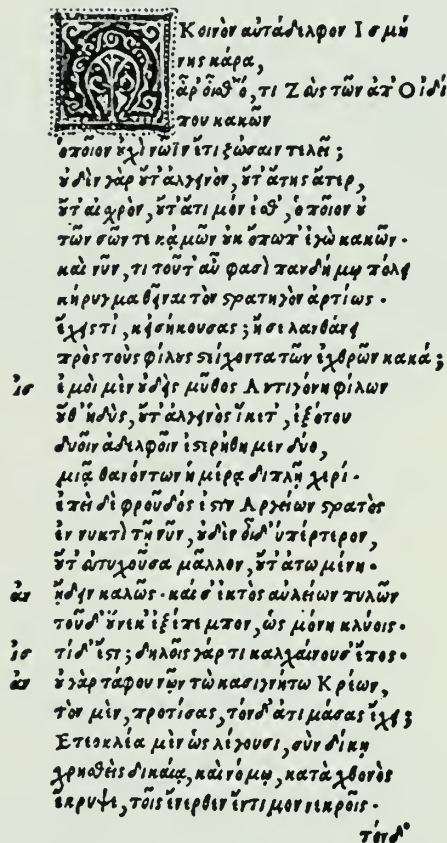 Ω Κοινὸν αὐτάδελφον Ισμή
νης κάρα,
ἆρ' οἶσθ' ὅ, τι Ζεὺς τῶν ἀπ' Οἰδί
που κακῶν
ὁποῖον οὐχὶ νῶϊν ἔτι ζώσαιν τελεῖ;
οὐδὲν γὰρ οὔτ' ἀλγεινὸν, οὔτ' ἄτης ἄτερ,
οὔτ' αἰσχρὸν, οὔτ' ἄτιμόν ἐσθ', ὁποῖον οὐ
τῶν σῶν τε κἀμῶν οὐκ ὄπωπ' ἐγὼ κακῶν·
καὶ νῦν, τί τοῦτ' αὖ φασὶ πανδήμῳ πόλει
κήρυγμα θεῖναι τὸν στρατηγὸν ἀρτίως·
ἔχεις τί, κεἰσήκουσας; ἤ σε λανθάνει
πρὸς τοὺς φίλους στείχοντα τῶν ἐχθρῶν κακά;
ἰσ ἐμοὶ μὲν οὐδεὶς μῦθος Αντιγόνη φίλων
οὔθ' ἡδὺς, οὔτ' ἀλγεινὸς ἵκετ', ἐξότου
δυοῖν ἀδελφοῖν ἐστερήθημεν δύο,
μιᾷ θανόντων ἡμέρᾳ διπλῇ χερί·
ἐπεὶ δὲ φροῦδός ἐστιν Αργείων στρατὸς
ἐν νυκτὶ τῇ νῦν, οὐδὲν οἶδ' ὑπέρτερον,
οὔτ' εὐτυχοῦσα μᾶλλον, οὔτ' ἀτωμένη·
ἀν ᾔδειν καλῶς· καί σ' ἐκτὸς αὐλείων πυλῶν
τοῦδ' οὕνεκ' ἐξέπεμπον, ὡς μόνη κλύοις·
ἰσ τί δ' ἔστ; δηλοῖς γάρ τι καλχαίνουσ' ἔπος·
ἀν οὐ γὰρ τάφου νῷν τὼ κασιγνήτω Κρέων,
τὸν μὲν, προτίσας, τὸν δ' ἀτιμάσας ἔχει;
Ετεοκλέα μὲν ὡς λέγουσι, σὺν δίκῃ
χρησθεὶς δικαίᾳ, καὶ νόμῳ, κατὰ χθονὸς
ἔκρυψε, τοῖς ἔνερθεν ἔντιμον νεκροῖς·
τὸν δ'